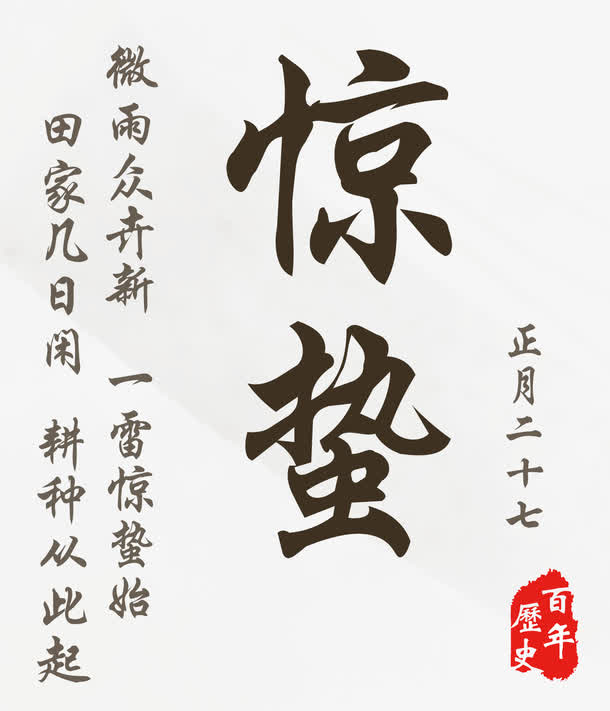 正月二十七
惊蛰
微雨众卉新 一雷惊蛰始
田家几日闲 耕种从此起
百年
歷史